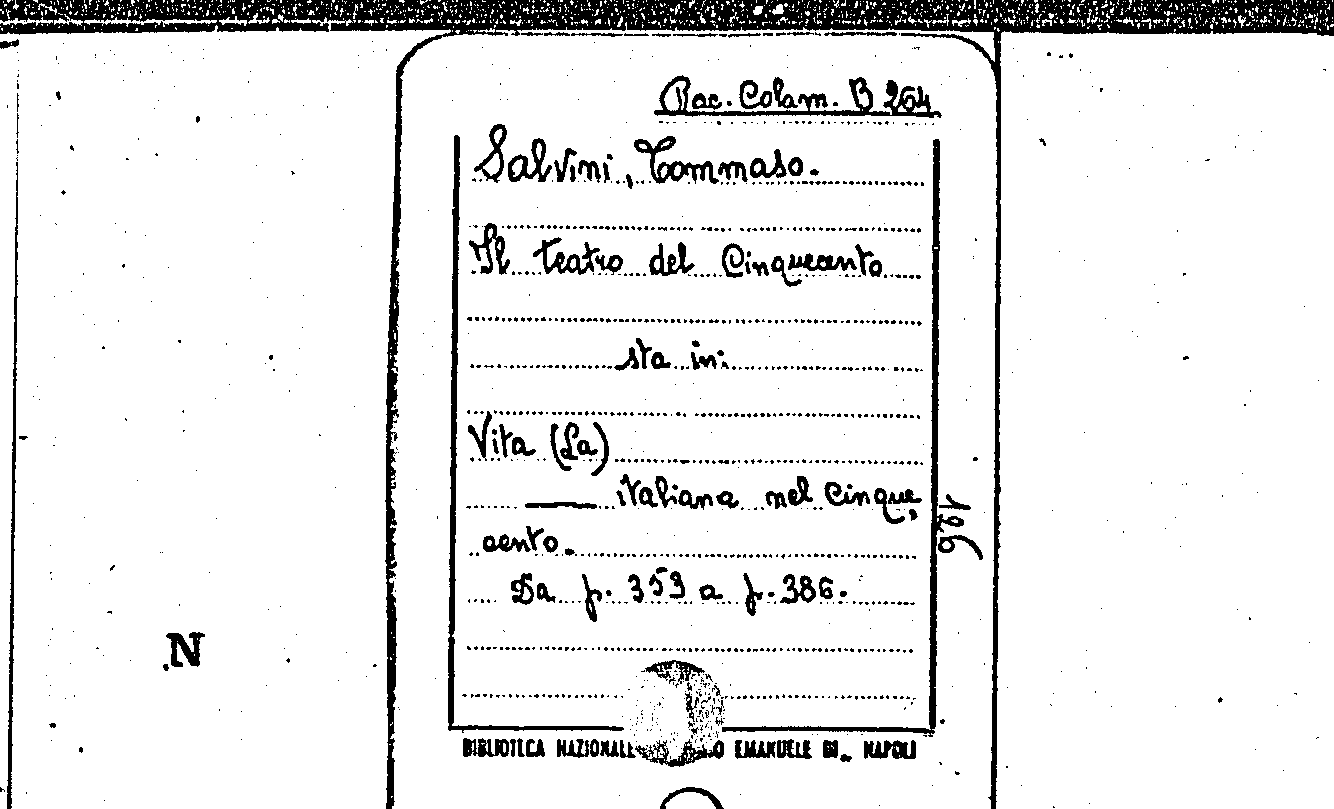 Rac. Colam. B 264
Salvini, Tommaso.
Il teatro del Cinquecento
sta in:
Vita (La)
—— italiana nel Cinque,
cento.
Da p. 353 a p. 386.
126
N
BIBLIOTECA NAZIONALE EMANUELE III. NAPOLI